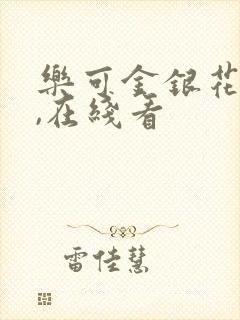 樂可金銀花
,在綫看
雷佳慧